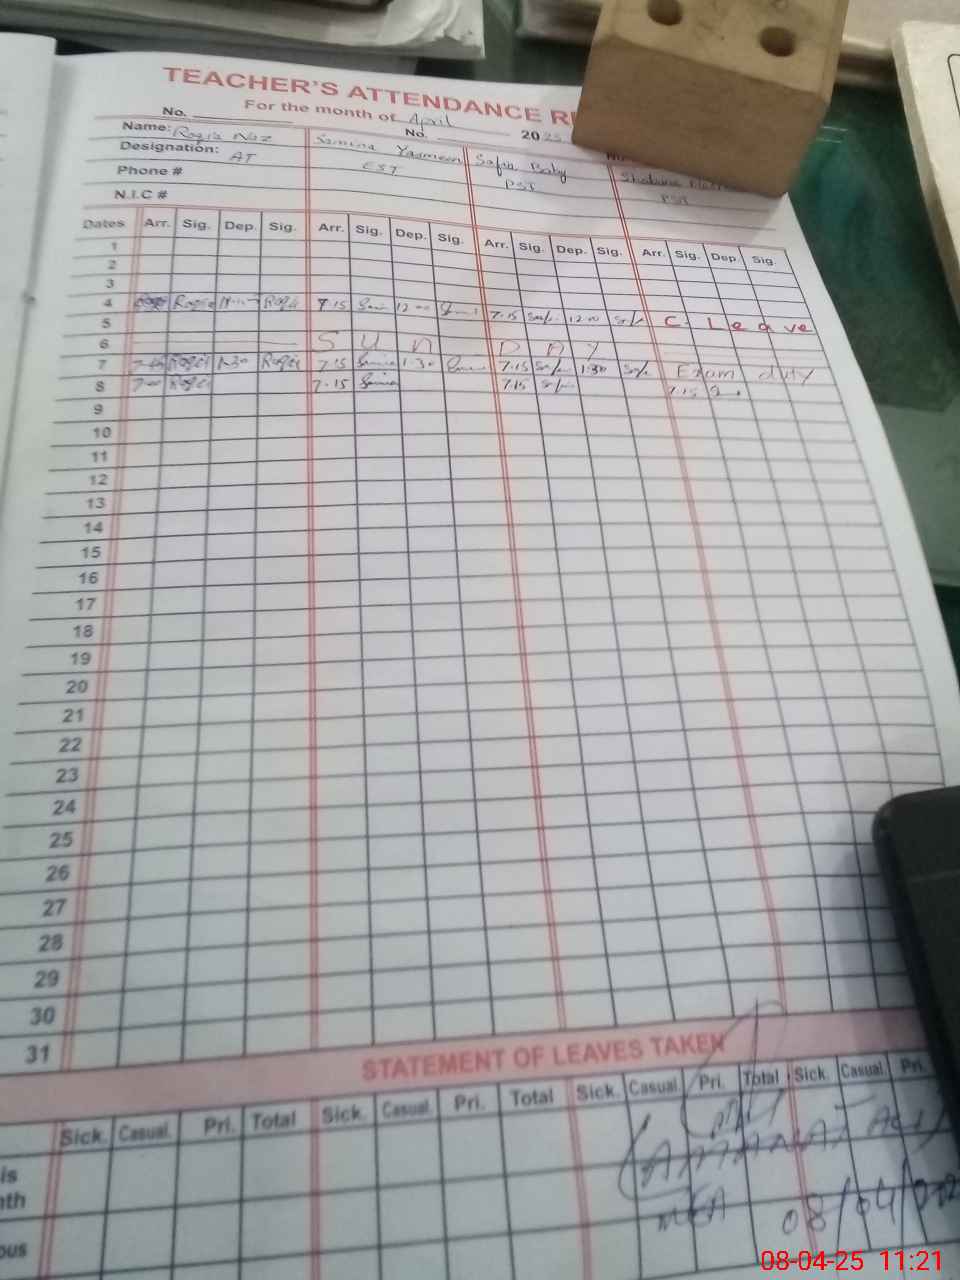 TEACHER'S ATTENDANCE RE
For the month of April 2025
No. No.
Name: Roqia Naz Samina Yasmeen Safia Baby Shabana
Designation: AT EST PST PST
Phone #
N.I.C #
Dates Arr. Sig. Dep. Sig. Arr. Sig. Dep. Sig. Arr. Sig. Dep. Sig. Arr. Sig. Dep. Sig.
1
2
3
4 Roqia Roqia 7.15 12.00 7.15 12.00 C. Leave
5
6 SUN DAY
7 Roqia 1.30 Roqia 7.15 Samina 1.30 7.15 Safia 1.30 Exam duty
8 7.00 Roqia 7.15 Samina 7.15 7.15
9
10
11
12
13
14
15
16
17
18
19
20
21
22
23
24
25
26
27
28
29
30
31
STATEMENT OF LEAVES TAKEN
Sick. Casual. Pri. Total Sick. Casual. Pri. Total Sick. Casual. Pri. Total Sick. Casual. Pri.
is
nth
(AMANAT ALI)
MEA 08/04/202
ous
08-04-25 11:21